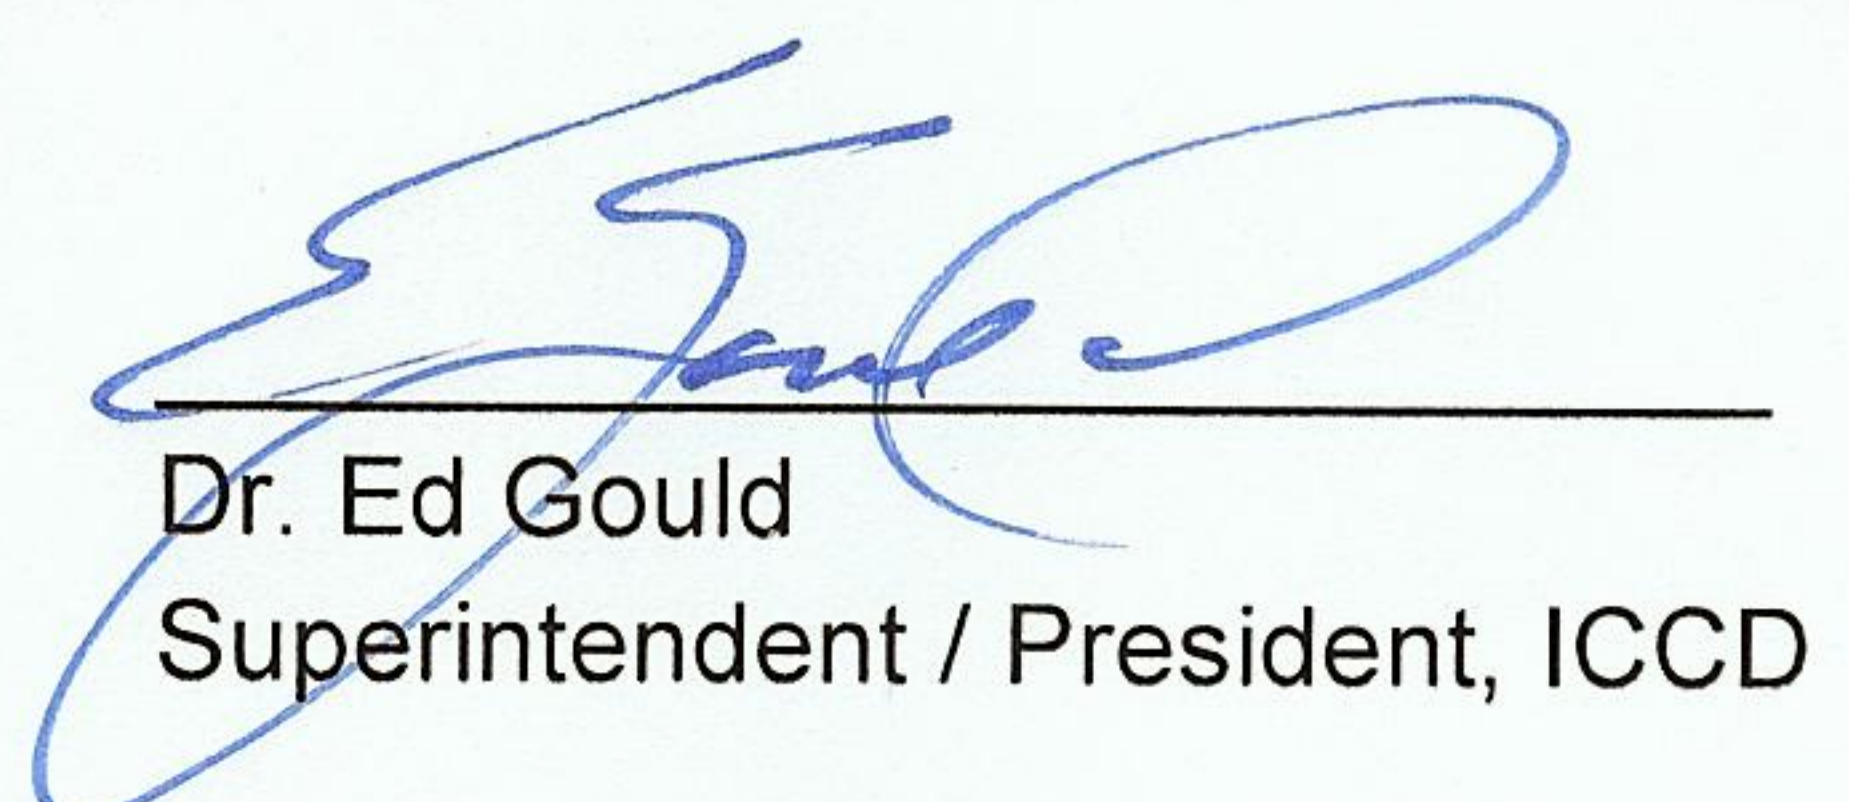 E Gould
Dr. Ed Gould
Superintendent / President, ICCD